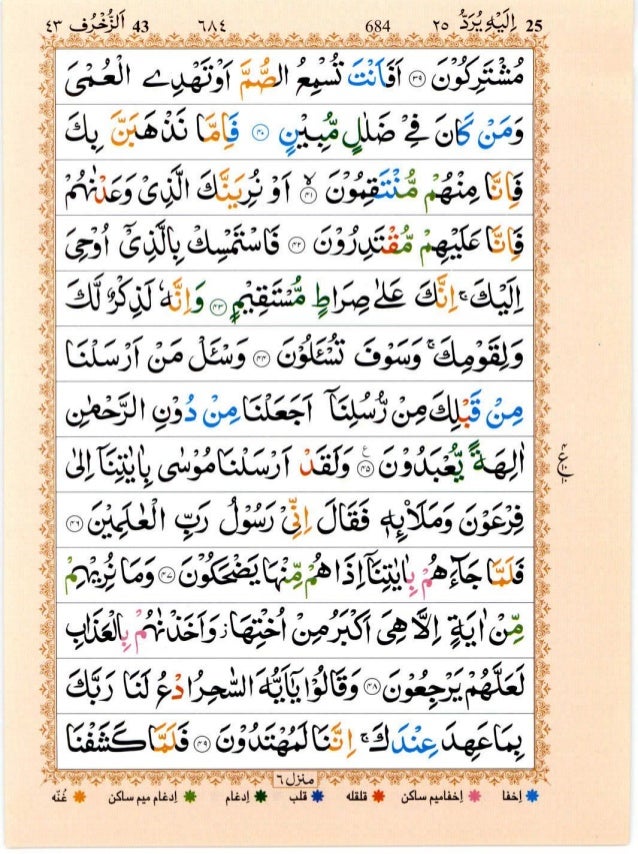 25 اِلَيْهِ يُرَدُّ ٢٥ 684 ٦٨٤ 43 اَلزُّخْرُف ٤٣
مُشْتَرِكُوْنَ ﴿۳۹﴾ اَفَاَنْتَ تُسْمِعُ الصُّمَّ اَوْ تَهْدِی الْعُمْیَ
وَمَنْ كَانَ فِیْ ضَلٰلٍ مُّبِیْنٍ ﴿۴۰﴾ فَاِمَّا نَذْهَبَنَّ بِكَ
فَاِنَّا مِنْهُمْ مُّنْتَقِمُوْنَ ﴿۴۱﴾ۙ اَوْ نُرِیَنَّكَ الَّذِیْ وَعَدْنٰهُمْ
فَاِنَّا عَلَیْهِمْ مُّقْتَدِرُوْنَ ﴿۴۲﴾ فَاسْتَمْسِكْ بِالَّذِیْۤ اُوْحِیَ
اِلَیْكَ ۚ اِنَّكَ عَلٰی صِرَاطٍ مُّسْتَقِیْمٍ ﴿۴۳﴾ وَاِنَّهٗ لَذِكْرٌ لَّكَ
وَلِقَوْمِكَ ۚ وَسَوْفَ تُسْـَٔلُوْنَ ﴿۴۴﴾ وَسْـَٔلْ مَنْ اَرْسَلْنَا
مِنْ قَبْلِكَ مِنْ رُّسُلِنَاۤ اَجَعَلْنَا مِنْ دُوْنِ الرَّحْمٰنِ
اٰلِهَةً یُّعْبَدُوْنَ ﴿۴۵﴾ۧ وَلَقَدْ اَرْسَلْنَا مُوْسٰی بِاٰیٰتِنَاۤ اِلٰی
فِرْعَوْنَ وَمَلَا۟ىِٕهٖ فَقَالَ اِنِّیْ رَسُوْلُ رَبِّ الْعٰلَمِیْنَ ﴿۴۶﴾
فَلَمَّا جَآءَهُمْ بِاٰیٰتِنَاۤ اِذَا هُمْ مِّنْهَا یَضْحَكُوْنَ ﴿۴۷﴾ وَمَا نُرِیْهِمْ
مِّنْ اٰیَةٍ اِلَّا هِیَ اَكْبَرُ مِنْ اُخْتِهَا ؗ وَاَخَذْنٰهُمْ بِالْعَذَابِ
لَعَلَّهُمْ یَرْجِعُوْنَ ﴿۴۸﴾ وَقَالُوْا یٰۤاَیُّهَ السّٰحِرُ ادْعُ لَنَا رَبَّكَ
بِمَا عَهِدَ عِنْدَكَ ۚ اِنَّنَا لَمُهْتَدُوْنَ ﴿۴۹﴾ فَلَمَّا كَشَفْنَا
منزل ٦
اِخفا اِخفامیم ساکن قلقله قلب اِدغام اِدغام میم ساکن غُنّه